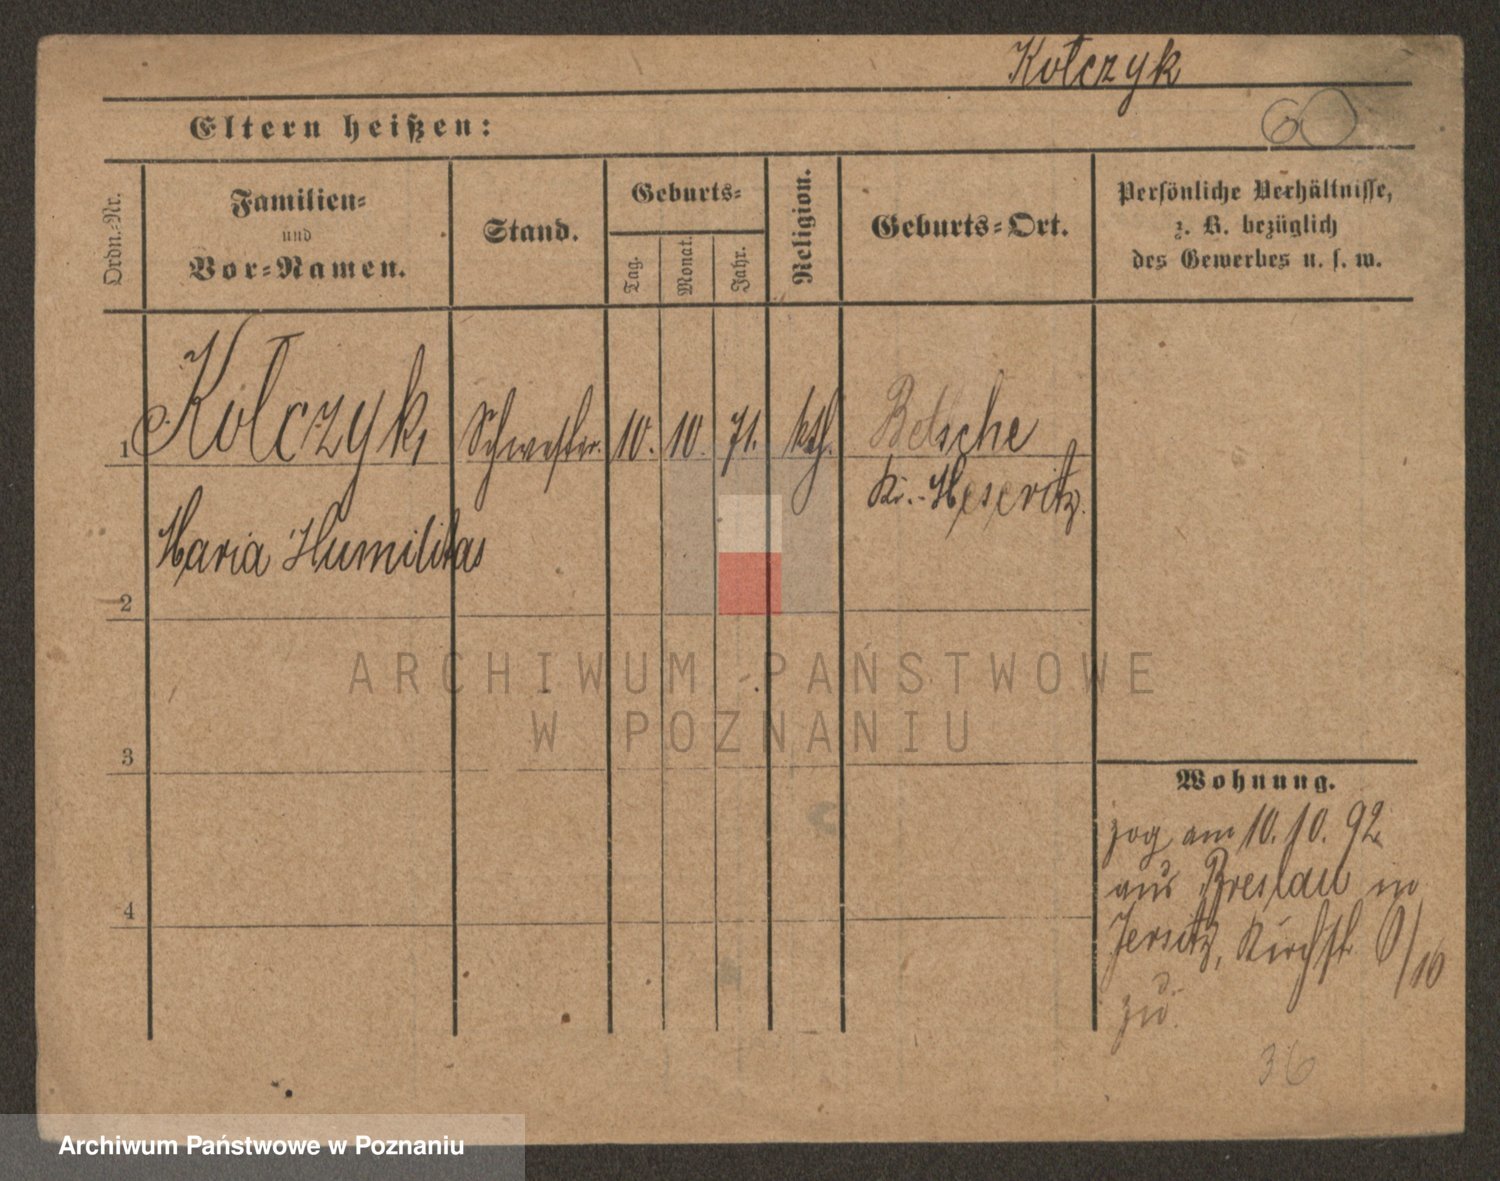 Kotczyk
60
Eltern heißen:
Ordn.-Nr.
Familien-
und
Vor-Namen.
Stand.
Geburts-
Tag.
Monat.
Jahr.
Religion.
Geburts-Ort.
Persönliche Verhältnisse,
z. B. bezüglich
des Gewerbes u. s. w.
1 Kotczyk, Schwester. 10. 10. 71. kth. Betsche
Kr. Meseritz.
Maria Humilitas
2
ARCHIWUM PAŃSTWOWE
W POZNANIU
3
4
Wohnung.
zog am 10. 10. 92
aus Breslau in
Jersitz, Kirchst.
zu.
36
Archiwum Państwowe w Poznaniu